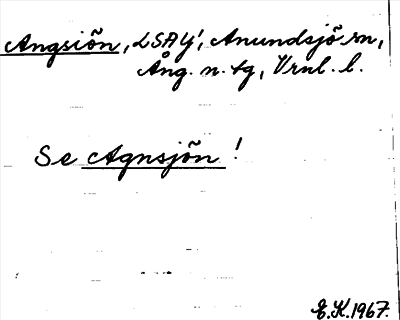 Angsiõn, LSA y', Anundsjö sn,
Ång. n. tg, Vrnl. l.
Se Agnsjõn!
E.K.1967.